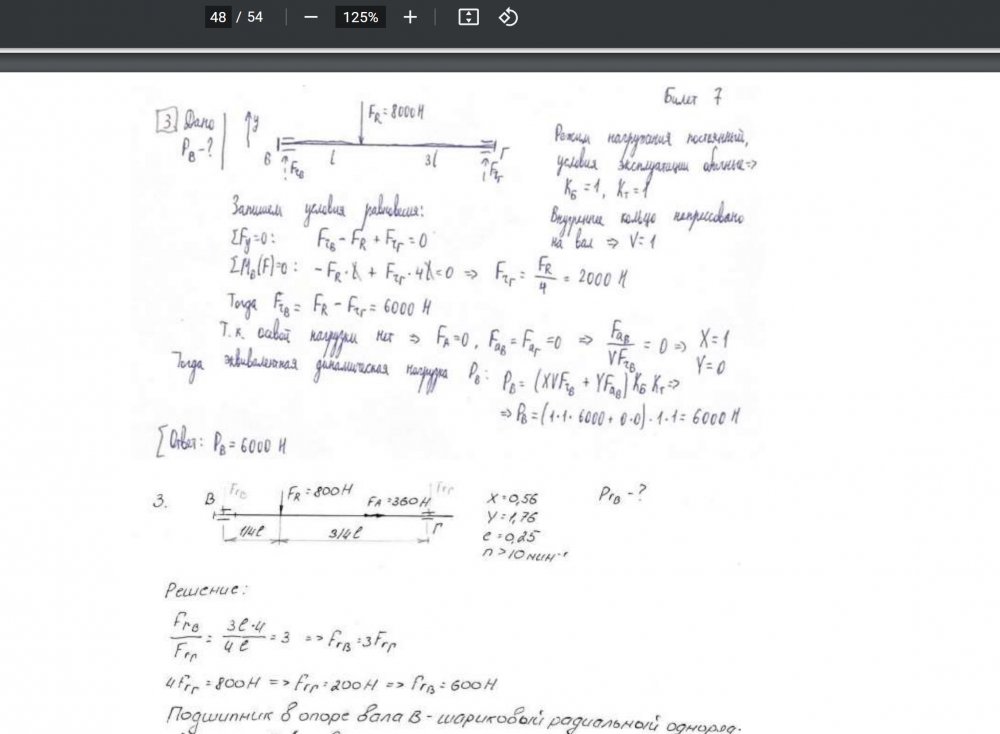 48 / 54
125%
Билет 7
3. Дано
P_B - ?
y
F_R = 8000 Н
В
l
3l
Г
F_rВ
F_rГ
Режим нагружения постоянный,
условия эксплуатации обычные =>
K_Б = 1, K_т = 1
Внутреннее кольцо напрессовано
на вал => V = 1
Запишем условия равновесия:
ΣF_y = 0: F_rВ - F_R + F_rГ = 0
ΣM_B(F) = 0: -F_R · l + F_rГ · 4l = 0 => F_rГ = F_R / 4 = 2000 Н
Тогда F_rВ = F_R - F_rГ = 6000 Н
Т.к. осевой нагрузки нет => F_A = 0, F_aВ = F_aГ = 0 => F_aВ / VF_rВ = 0 => X = 1
Y = 0
Тогда эквивалентная динамическая нагрузка P_B: P_B = (XVF_rВ + YF_aВ) K_Б K_т =>
=> P_B = (1·1·6000 + 0·0)·1·1 = 6000 Н
Ответ: P_B = 6000 Н
3.
В
F_rВ
F_R = 800 Н
F_A = 360 Н
F_rГ
Г
1/4 l
3/4 l
X = 0,56
Y = 1,76
e = 0,25
n > 10 мин⁻¹
P_rВ - ?
Решение:
F_rВ / F_rГ = 3l·4 / 4l = 3 => F_rВ = 3F_rГ
4F_rГ = 800 Н => F_rГ = 200 Н => F_rВ = 600 Н
Подшипник в опоре вала В - шариковый радиальный одноряд-